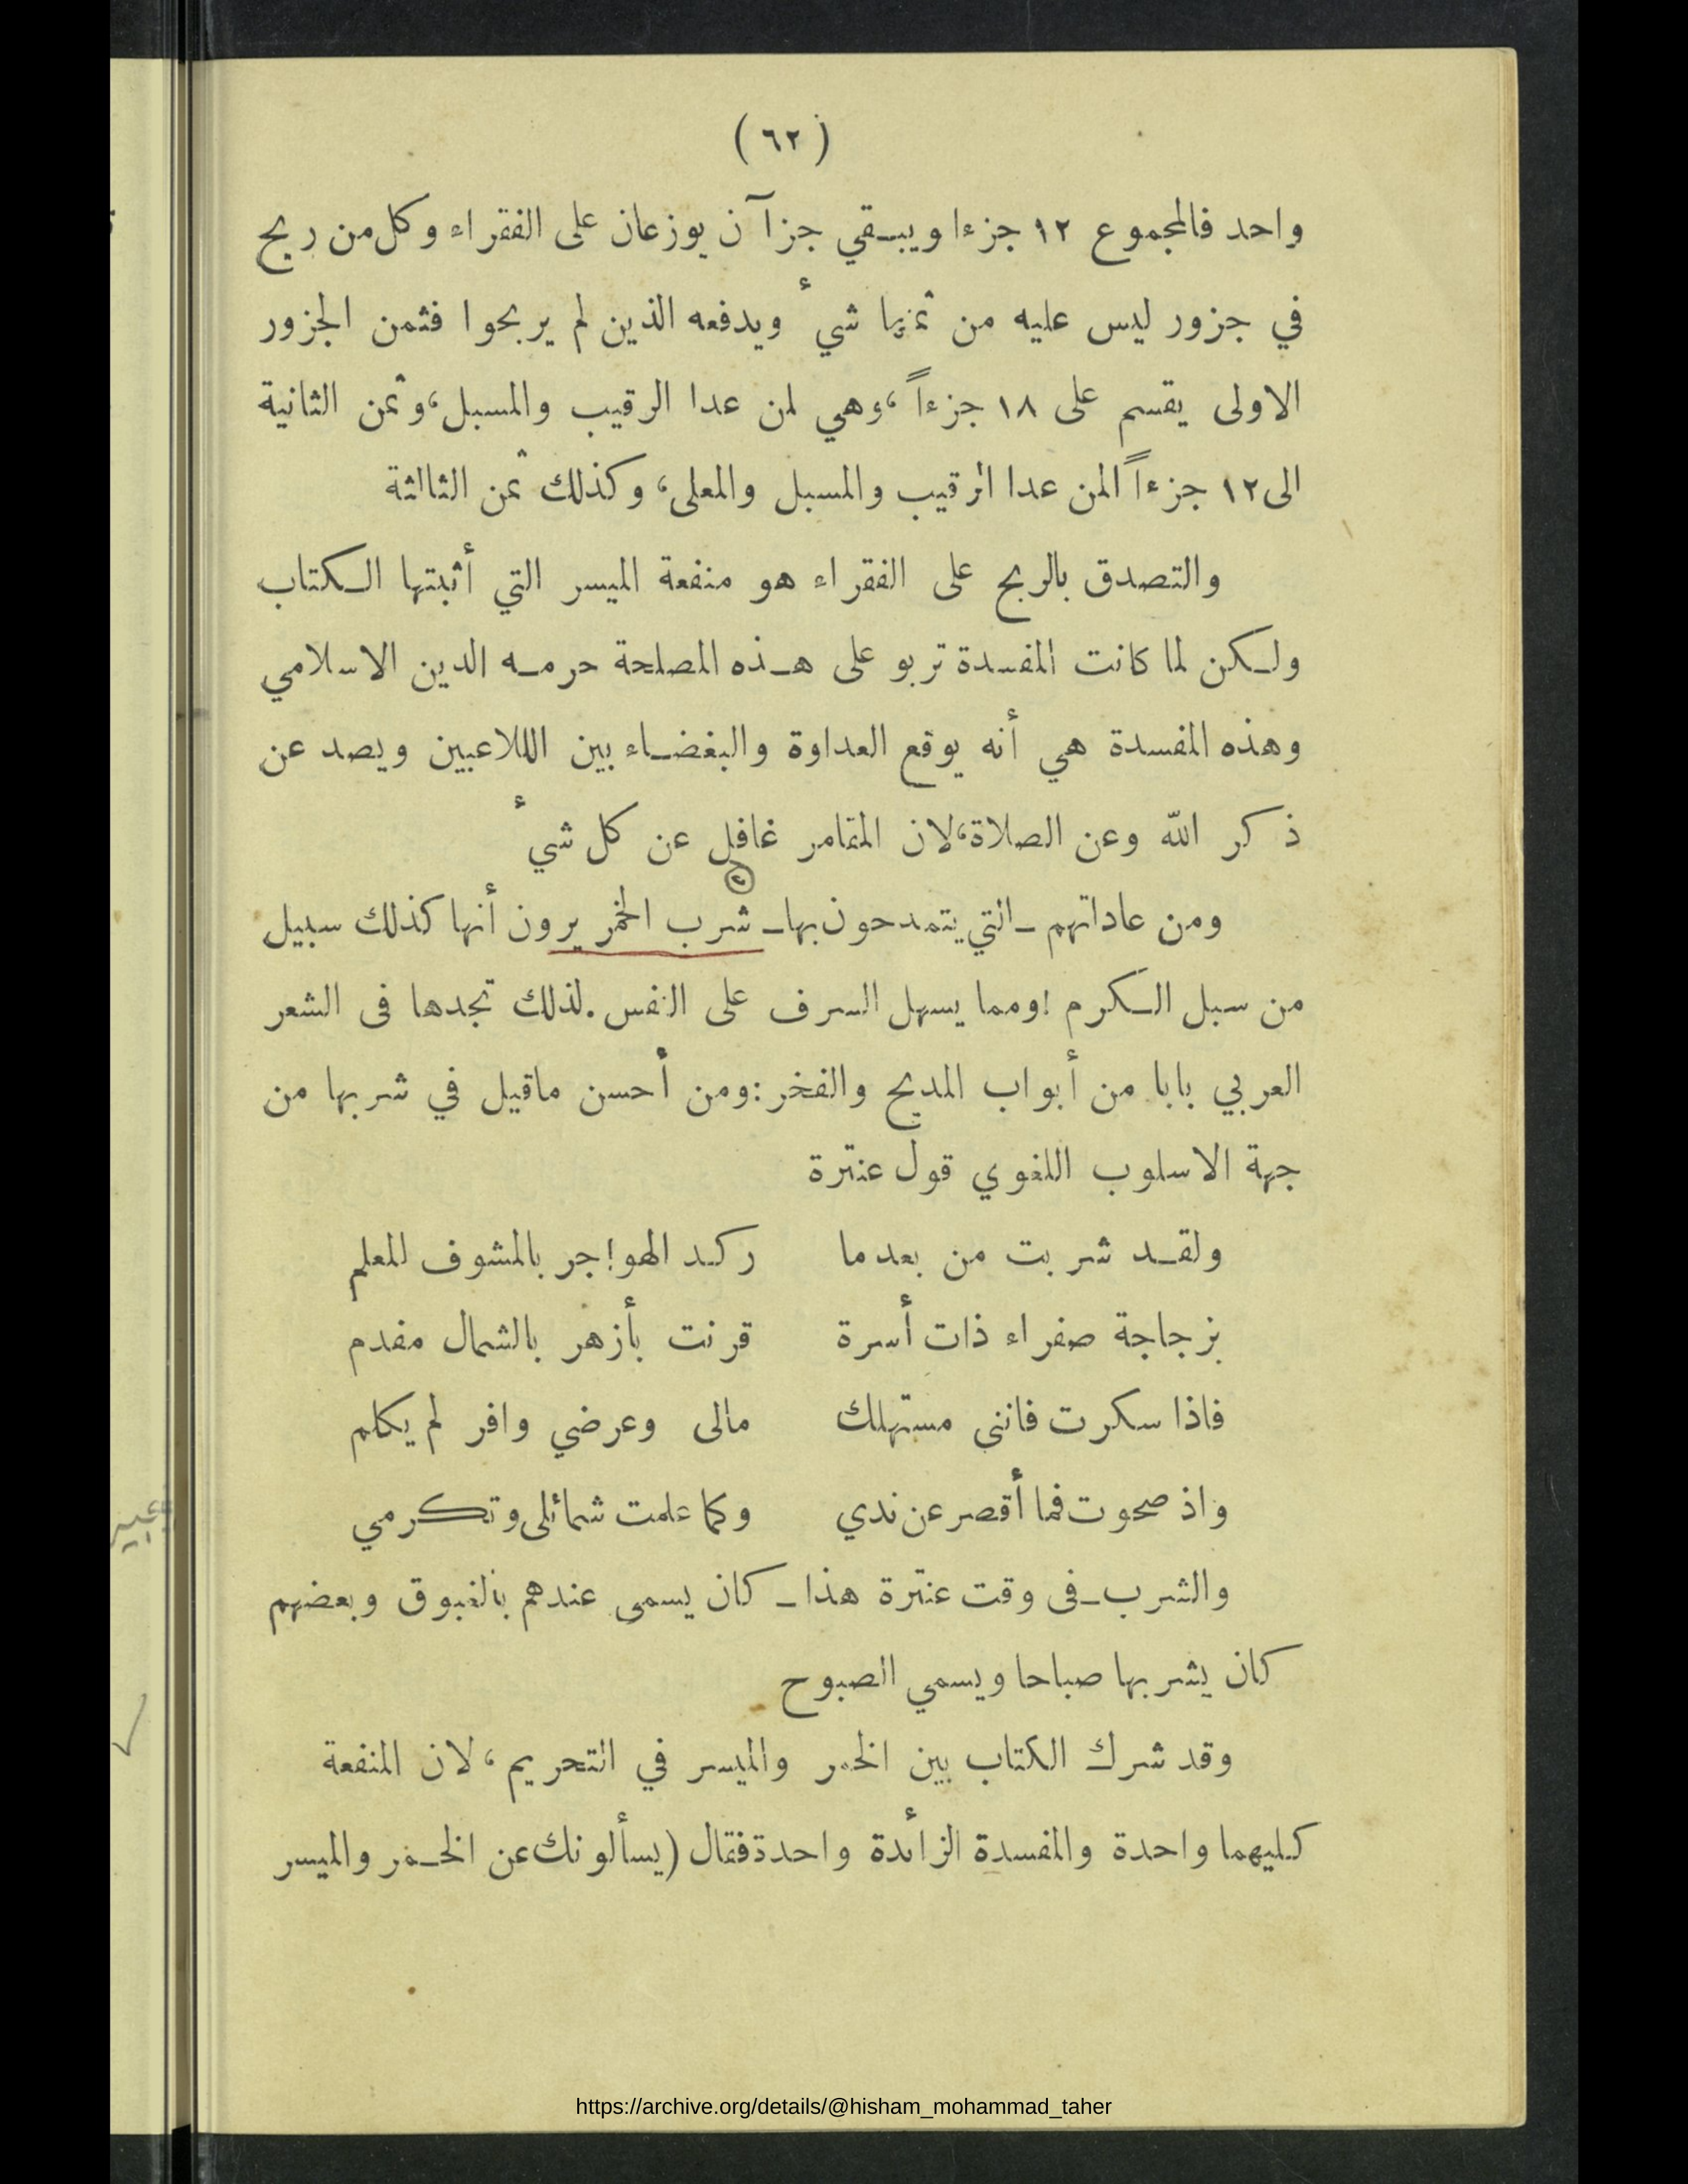 ( ٦٢ )
واحد فالمجموع ١٢ جزءا ويبـقي جزآ ن يوزعان على الفقراء وكل من ربح
في جزور ليس عليه من ثمنها شيء ويدفعه الذين لم يربحوا فثمن الجزور
الاولى يقسم على ١٨ جزءاً ،وهي لمن عدا الرقيب والمسبل،وثمن الثانية
الى١٢ جزءاً لمن عدا الرقيب والمسبل والمعلى، وكذلك ثمن الثالثة
والتصدق بالربح على الفقراء هو منفعة الميسر التي أثبتها الـكتاب
ولـكن لما كانت المفسدة تربو على هـذه المصلحة حرمـه الدين الاسلامي
وهذه المفسدة هي أنه يوقع العداوة والبغضـاء بين اللاعبين ويصد عن
ذكر الله وعن الصلاة،لان المقامر غافل عن كل شيء
ومن عاداتهم ـ التي يتمدحون بها ـ شرب الخمر يرون أنها كذلك سبيل
من سبل الـكرم !ومما يسهل السرف على النفس .لذلك تجدها فى الشعر
العربي بابا من أبواب المديح والفخر :ومن أحسن ماقيل في شربها من
جهة الاسلوب اللغوي قول عنترة
ولقـد شربت من بعدما ركد الهواجر بالمشوف المعلم
بزجاجة صفراء ذات أسرة قرنت بأزهر بالشمال مفدم
فاذا سكرت فانني مستهلك مالى وعرضي وافر لم يكلم
واذ صحوت فما أقصر عن ندي وكما علمت شمائلى وتكرمي
والشرب ـ فى وقت عنترة هذا ـ كان يسمى عندهم بالغبوق وبعضهم
كان يشربها صباحا ويسمي الصبوح
وقد شرك الكتاب بين الخمر والميسر في التحريم ، لان المنفعة
كليهما واحدة والمفسدة الزائدة واحدة فقال (يسألونك عن الخـمر والميسر
https://archive.org/details/@hisham_mohammad_taher